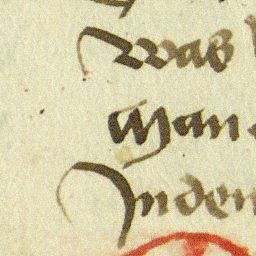 Was
Man
Inden